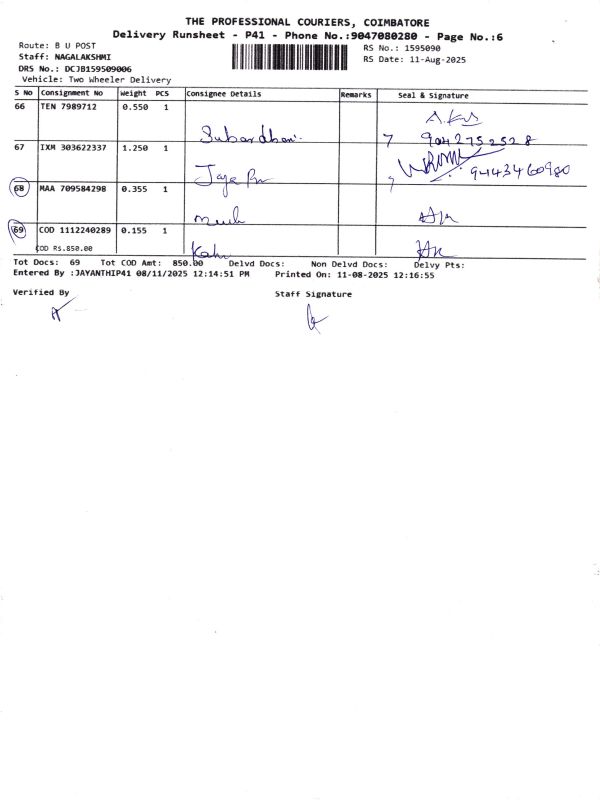 THE PROFESSIONAL COURIERS, COIMBATORE
Delivery Runsheet - P41 - Phone No.:9047080280 - Page No.:6
Route: B U POST
Staff: NAGALAKSHMI
DRS No.: DCJB159509006
Vehicle: Two Wheeler Delivery
RS No.: 1595090
RS Date: 11-Aug-2025
S No Consignment No Weight PCS Consignee Details Remarks Seal & Signature
66 TEN 7989712 0.550 1
9042752528
67 IXM 303622337 1.250 1
9443460980
68 MAA 709584298 0.355 1
69 COD 1112240289 0.155 1
COD RS.850.00
Tot Docs: 69 Tot COD Amt: 850.00 Delvd Docs: Non Delvd Docs: Delvy Pts:
Entered By :JAYANTHIP41 08/11/2025 12:14:51 PM Printed On: 11-08-2025 12:16:55
Verified By Staff Signature